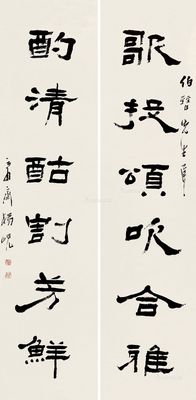 伯晉先生屬
歌投頌吹合雅
酌清酤割芳鮮
齋楊峴